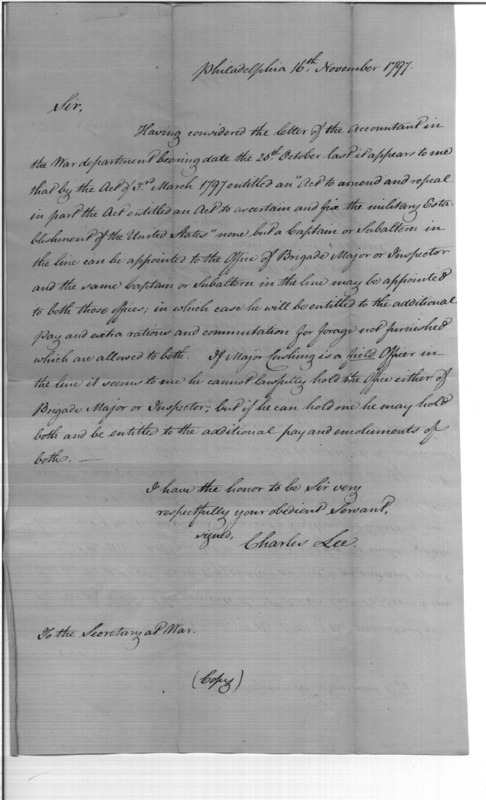 Philadelphia 16th November 1797.
Sir,
Having considered the letter of the Accountant in
the War department bearing date the 28th October last it appears to me
that by the Act of 3rd March 1797 entitled an "Act to amend and repeal
in part the Act entitled an Act to ascertain and fix the military Esta-
blishment of the United States" none but a Captain or Subaltern in
the line can be appointed to the Office of Brigade Major or Inspector
and the same Captain or Subaltern in the line may be appointed
to both those offices; in which case he will be entitled to the additional
pay and extra rations and commutation for forage not furnished
which are allowed to both. If Major Cushing is a field Officer in
the line it seems to me he cannot lawfully hold the Office either of
Brigade Major or Inspector; but if he can hold one he may hold
both and be entitled to the additional pay and emoluments of
both. —
I have the honor to be Sir very
respectfully your obedient Servant,
signed, Charles Lee.
To the Secretary at War.
(Copy)